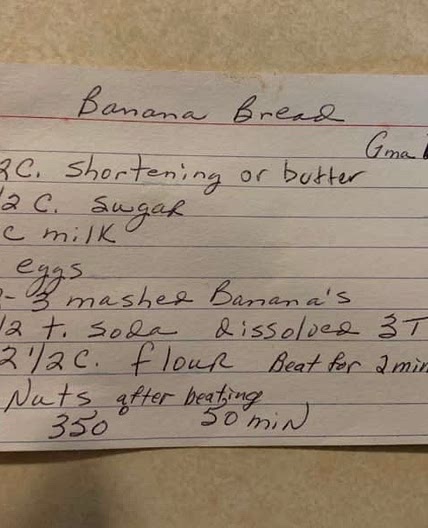 Banana Bread
Gma
2C. shortening or butter
/2 C. sugar
c milk
eggs
- 3 mashed Banana's
/2 t. soda dissolved 3T
2 1/2 C. flour Beat for 2 min
Nuts after beating
350° 50 min